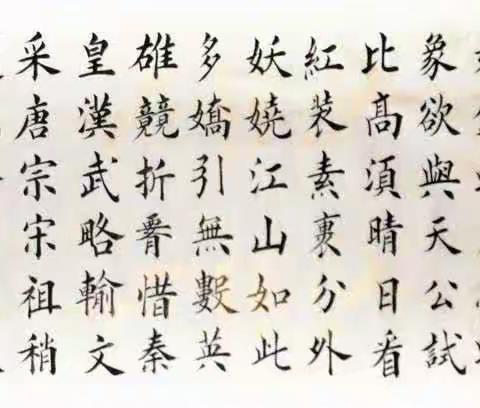 象欲與天公試
比髙須晴日看
紅装素裹分外
妖嬈江山如此
多嬌引無數英
雄競折腰惜秦
皇漢武略輸文
采唐宗宋祖稍